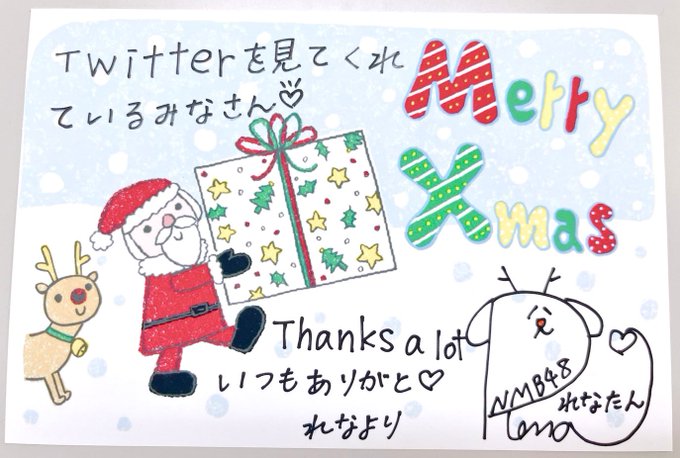 Twitterを見てくれ
ているみなさん♡
Merry
Xmas
Thanks a lot
いつもありがと♡
れなより
NMB48
れなたん
Rena